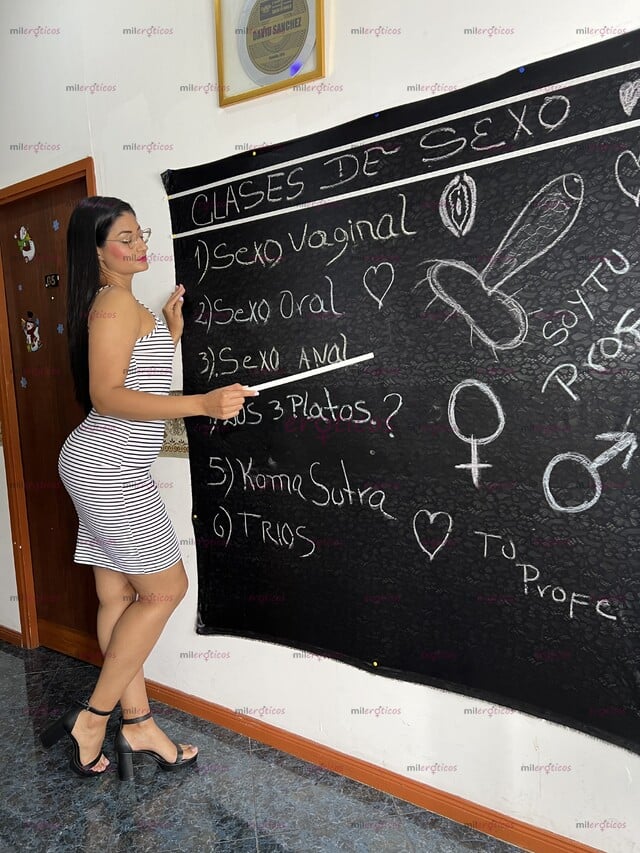 DAVID SANCHEZ
CLASES DE SEXO
1) Sexo Vaginal
2) Sexo Oral
3). Sexo ANal
Los 3 Platos.?
5) Kama Sutra
6) TRIOS
SOY TU
Profe
TU
Profe
mileróticos